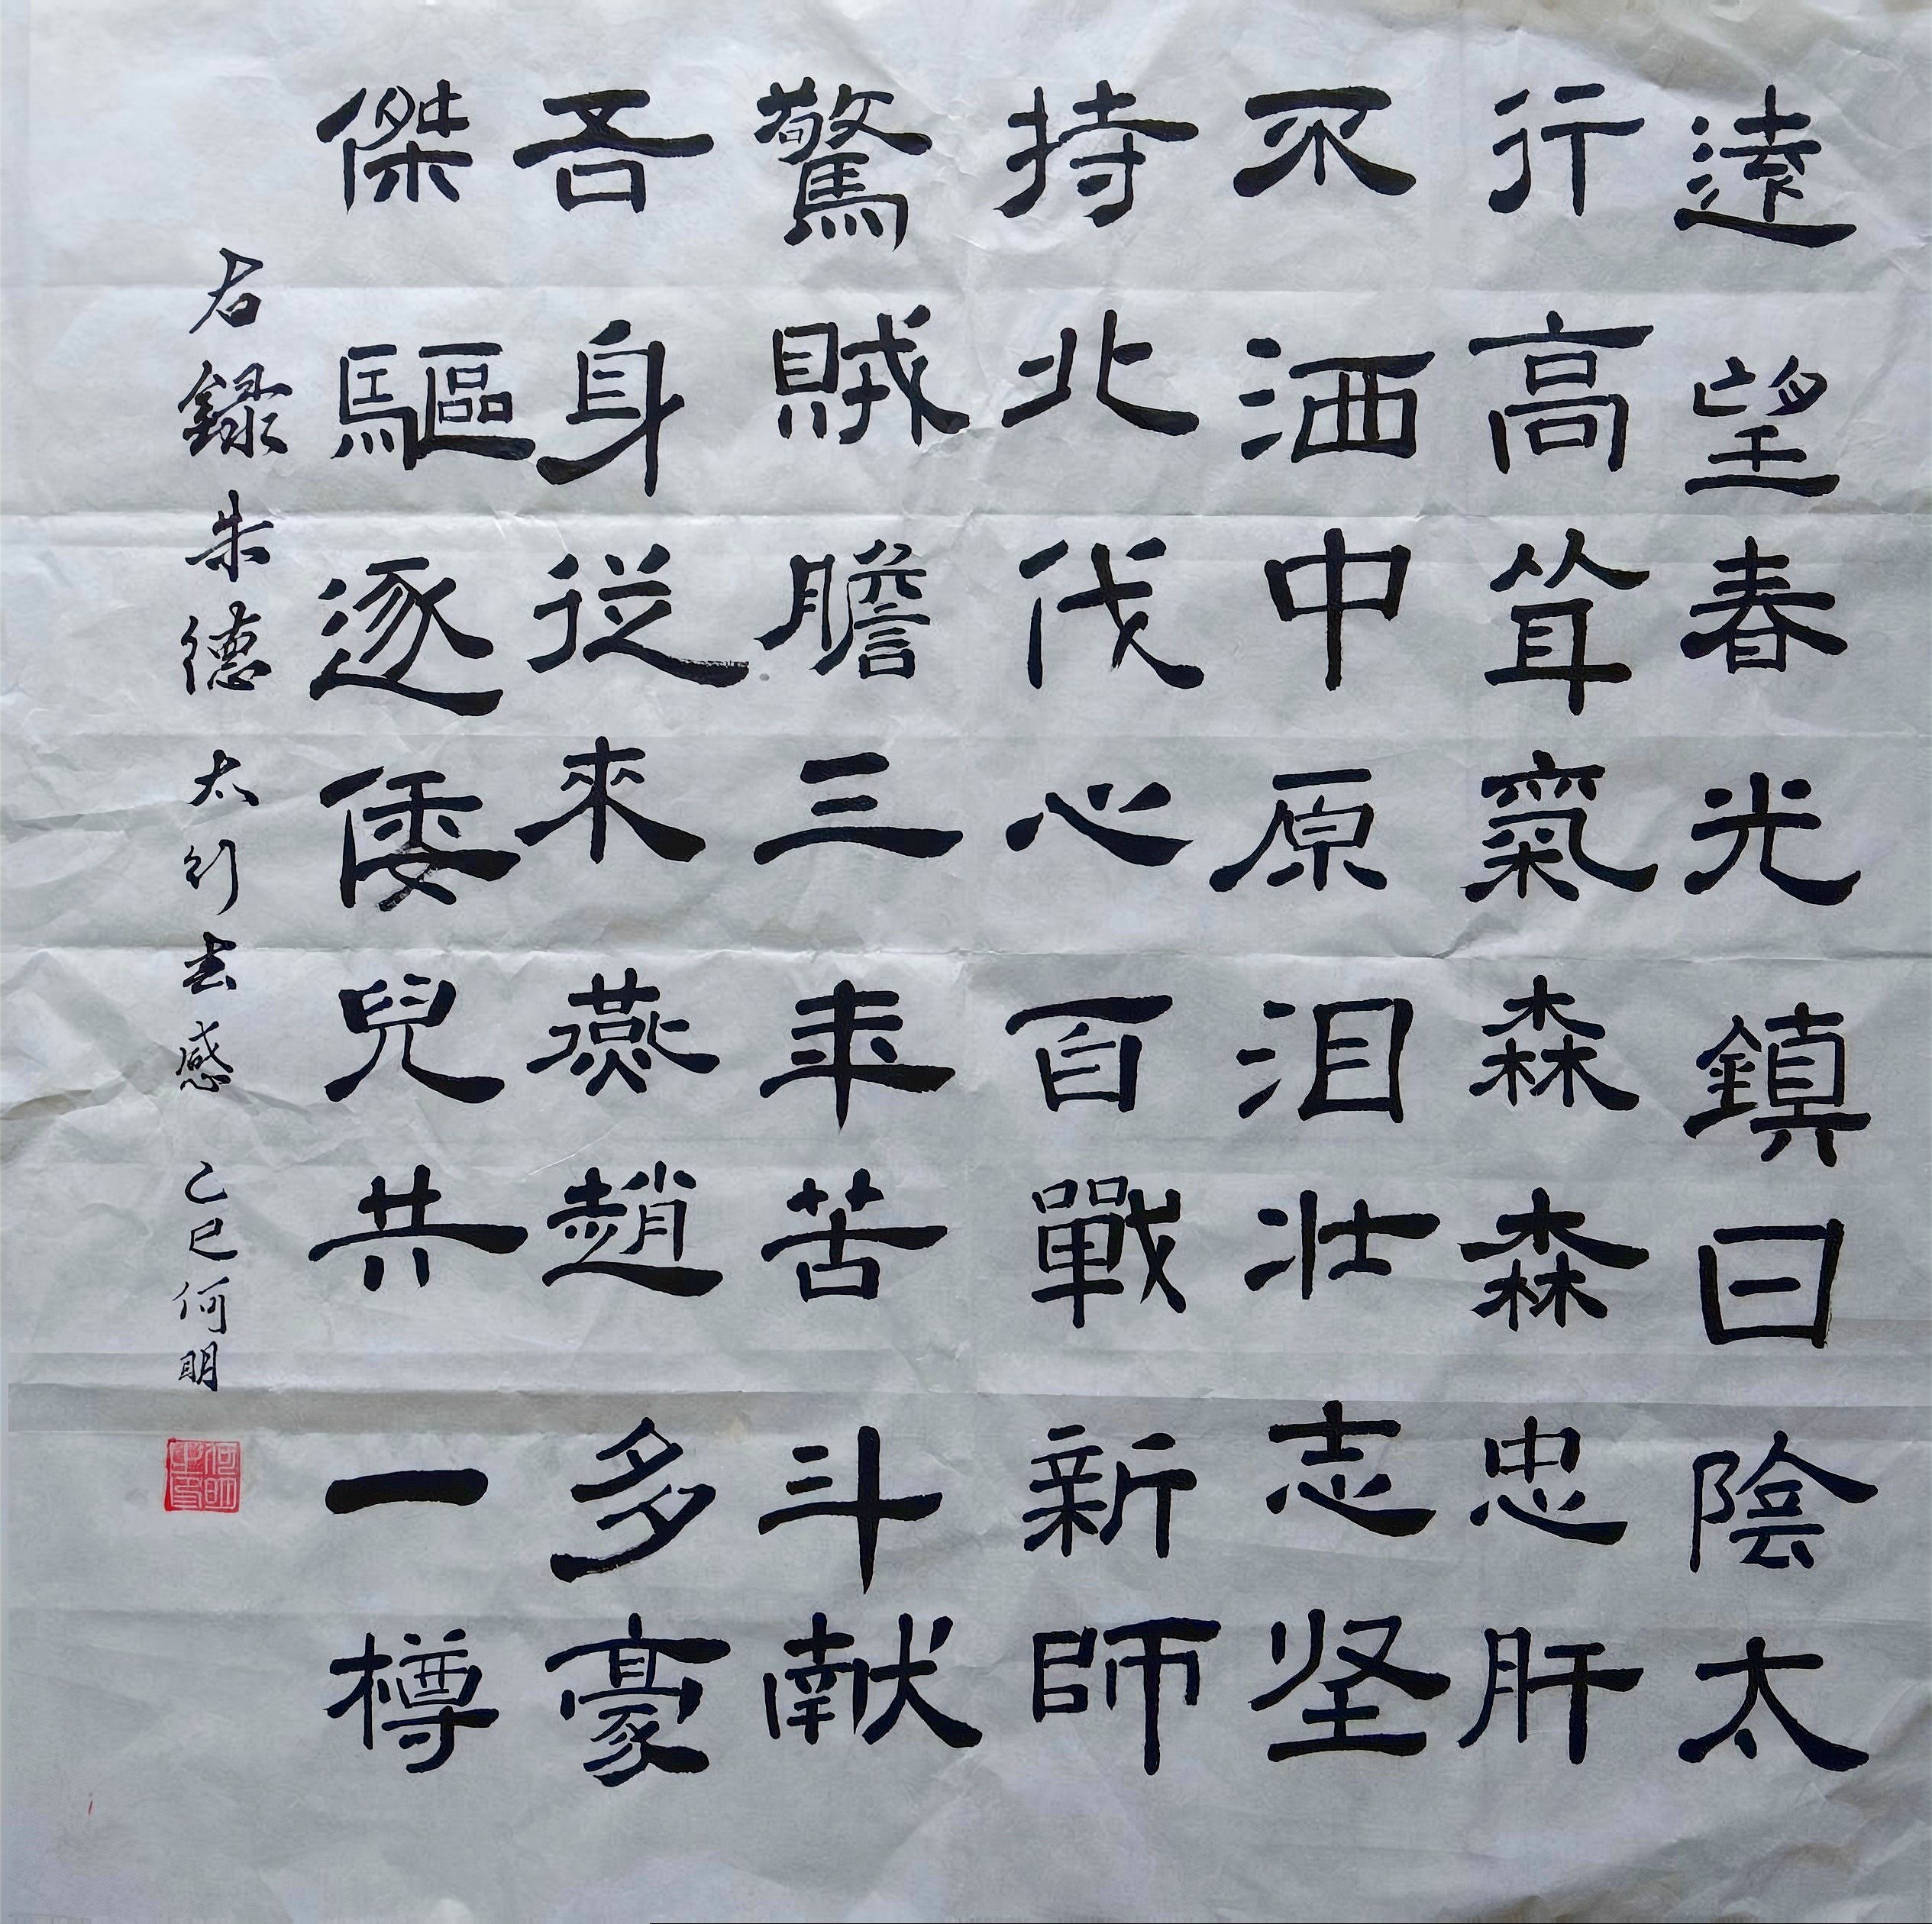 遠望春光鎮日陰太
行高耸氣森森忠肝
不洒中原泪壮志坚
持北伐心百戰新師
驚賊膽三年苦斗献
吾身從來燕趙多豪
傑驅逐倭兒共一樽
右錄朱德太行春感乙巳何明